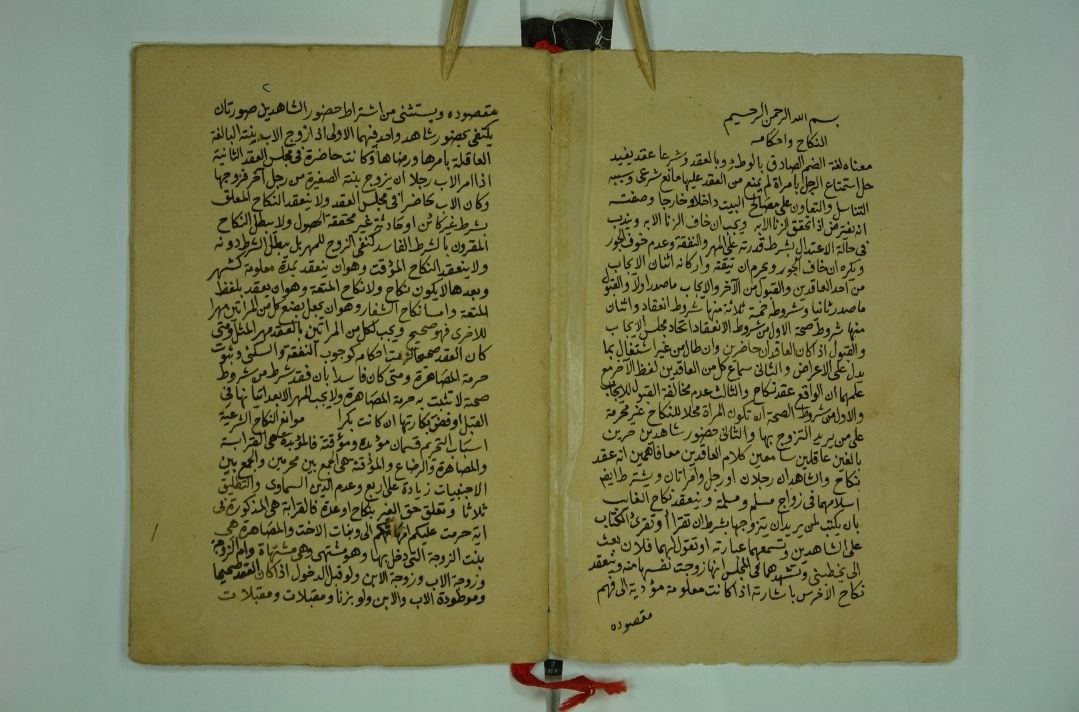 بسم الله الرحمن الرحيم
النكاح واحكامه
معناه لغة الضم الصادق بالوطء وبالعقد وشرعا عقد يفيد
حل استمتاع الرجل بامرأة لم يمنع من العقد عليها مانع شرعى وسببه
التناسل والتعاون على مصالح البيت داخلا وخارجا وصفته
انه يفترض اذا تحقق الزنا الا به ويجب ان خاف الزنا الا به ويندب
فى حالة الاعتدال بشرط قدرته على المهر والنفقة وعدم خوف الجور
ويكره ان خاف الجور ويحرم ان تيقنه واركانه اثنان الايجاب
من احد العاقدين والقبول من الآخر والايجاب ما صدر اولا والقبول
ما صدر ثانيا وشروطه خمسة ثلاثة منها شروط انعقاد واثنان
منها شروط صحة الاول من شروط الانعقاد اتحاد مجلس الايجاب
والقبول اذا كان العاقدان حاضرين وان طال من غير اشتغال بما
يدل على الاعراض والثانى سماع كل من العاقدين لفظ الآخر مع
علمهما ان الواقع عقد نكاح والثالث عدم مخالفة القبول للايجاب
والاول من شروط الصحة ان تكون المرأة محلا للنكاح غير محرمة
على من يريد التزوج بها والثانى حضور شاهدين حرين
بالغين عاقلين سامعين كلام العاقدين معا فاهمين انه عقد
نكاح والشاهدان رجلان او رجل وامرأتان ويشترط ايضا
اسلامهما فى زواج مسلم ومسلمة وينعقد نكاح الغائب
بان يكتب لمن يريد ان يتزوجها بشرط ان تقرأ او تقرئ الكتاب
على الشاهدين وتسمعهما عبارته او تقول لهما فلان بعث
الى يخطبنى وتشهدهما فى المجلس انها زوجت نفسها منه وينعقد
نكاح الاخرس باشارته اذا كانت معلومة مؤدية الى فهم
مقصوده
٢
مقصوده ويستثنى من اشتراط حضور الشاهدين صورتان
يكتفى بحضور شاهد واحد فيهما الاولى اذا زوج الاب بنته البالغة
العاقلة بامرها ورضاها وكانت حاضرة فى مجلس العقد الثانية
اذا امر الاب رجلا ان يزوج بنته الصغيرة من رجل آخر فزوجها
وكان الاب حاضرا فى مجلس العقد ولا ينعقد النكاح المعلق
بشرط غير كائن او حادثة غير محققة الحصول ولا يبطل النكاح
المقرون بالشرط الفاسد كنفى الزوج للمهر بل يبطل الشرط دونه
ولا ينعقد النكاح المؤقت وهو ان ينعقد بمدة معلومة كشهر
وبعدها لا يكون نكاح ولا نكاح المتعة وهو ان يعقد بلفظ
المتعة واما نكاح الشغار وهو ان يجعل بضع كل من المرأتين مهرا
للاخرى فهو صحيح ويجب لكل من المرأتين بالعقد مهر المثل ومتى
كان العقد صحيحا احكامه كوجوب النفقة والسكنى وثبوت
حرمة المصاهرة ومتى كان فاسدا بان فقد شرط من شروط
صحته لا تثبت به حرمة المصاهرة ولا يجب المهر الا بعد اتيانها فى
القبل او فض بكارتها ان كانت بكرا موانع النكاح الشرعية
اسباب التحريم قسمان مؤبدة ومؤقتة فالمؤبدة هى القرابة
والمصاهرة والرضاع والمؤقتة هى الجمع بين محرمين والجمع بين
الاجنبيات زيادة على اربع وعدم الدين السماوى والتطليق
ثلاثا وتعلق حق الغير بنكاح او عدة فالقرابة هى المذكورة فى
اية حرمت عليكم امهاتكم الى وبنات الاخت والمصاهرة هى
بنت الزوجة التى دخل بها وهو مشتهى وهى مشتهاة وام الزوجة
وزوجة الاب وزوجة الابن ولو قبل الدخول اذا كان العقد صحيحا
وموطوءة الاب والابن ولو بزنا ومقبلات ومقبلات